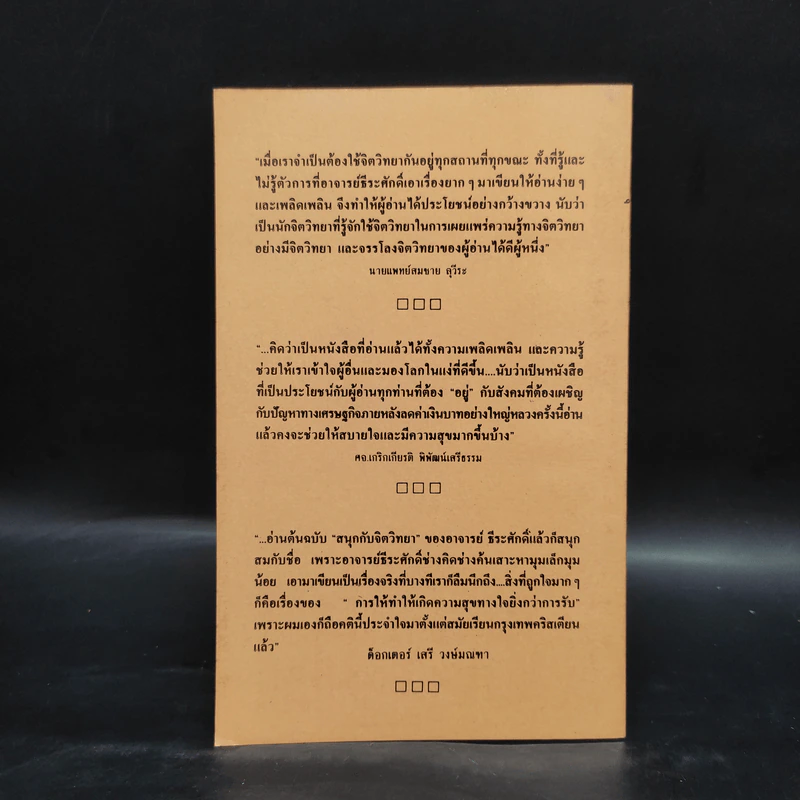 "เมื่อเราจำเป็นต้องใช้จิตวิทยากันอยู่ทุกสถานที่ทุกขณะ ทั้งที่รู้และ
ไม่รู้ตัวการที่อาจารย์ธีระศักดิ์เอาเรื่องยาก ๆ มาเขียนให้อ่านง่าย ๆ
และเพลิดเพลิน จึงทำให้ผู้อ่านได้ประโยชน์อย่างกว้างขวาง นับว่า
เป็นนักจิตวิทยาที่รู้จักใช้จิตวิทยาในการเผยแพร่ความรู้ทางจิตวิทยา
อย่างมีจิตวิทยา และจรรโลงจิตวิทยาของผู้อ่านได้ดีผู้หนึ่ง"
นายแพทย์สมชาย สุวีระ
"...คิดว่าเป็นหนังสือที่อ่านแล้วได้ทั้งความเพลิดเพลิน และความรู้
ช่วยให้เราเข้าใจผู้อื่นและมองโลกในแง่ที่ดีขึ้น....นับว่าเป็นหนังสือ
ที่เป็นประโยชน์กับผู้อ่านทุกท่านที่ต้อง "อยู่" กับสังคมที่ต้องเผชิญ
กับปัญหาทางเศรษฐกิจภายหลังลดค่าเงินบาทอย่างใหญ่หลวงครั้งนี้อ่าน
แล้วคงจะช่วยให้สบายใจและมีความสุขมากขึ้นบ้าง"
ศจ.เกริกเกียรติ พิพัฒน์เสรีธรรม
"...อ่านต้นฉบับ "สนุกกับจิตวิทยา" ของอาจารย์ ธีระศักดิ์แล้วก็สนุก
สมกับชื่อ เพราะอาจารย์ธีระศักดิ์ช่างคิดช่างค้นเสาะหามุมเล็กมุม
น้อย เอามาเขียนเป็นเรื่องจริงที่บางทีเราก็ลืมนึกถึง....สิ่งที่ถูกใจมาก ๆ
ก็คือเรื่องของ " การให้ทำให้เกิดความสุขทางใจยิ่งกว่าการรับ"
เพราะผมเองก็ถือคตินี้ประจำใจมาตั้งแต่สมัยเรียนกรุงเทพคริสเตียน
แล้ว"
ด็อกเตอร์ เสรี วงษ์มณฑา